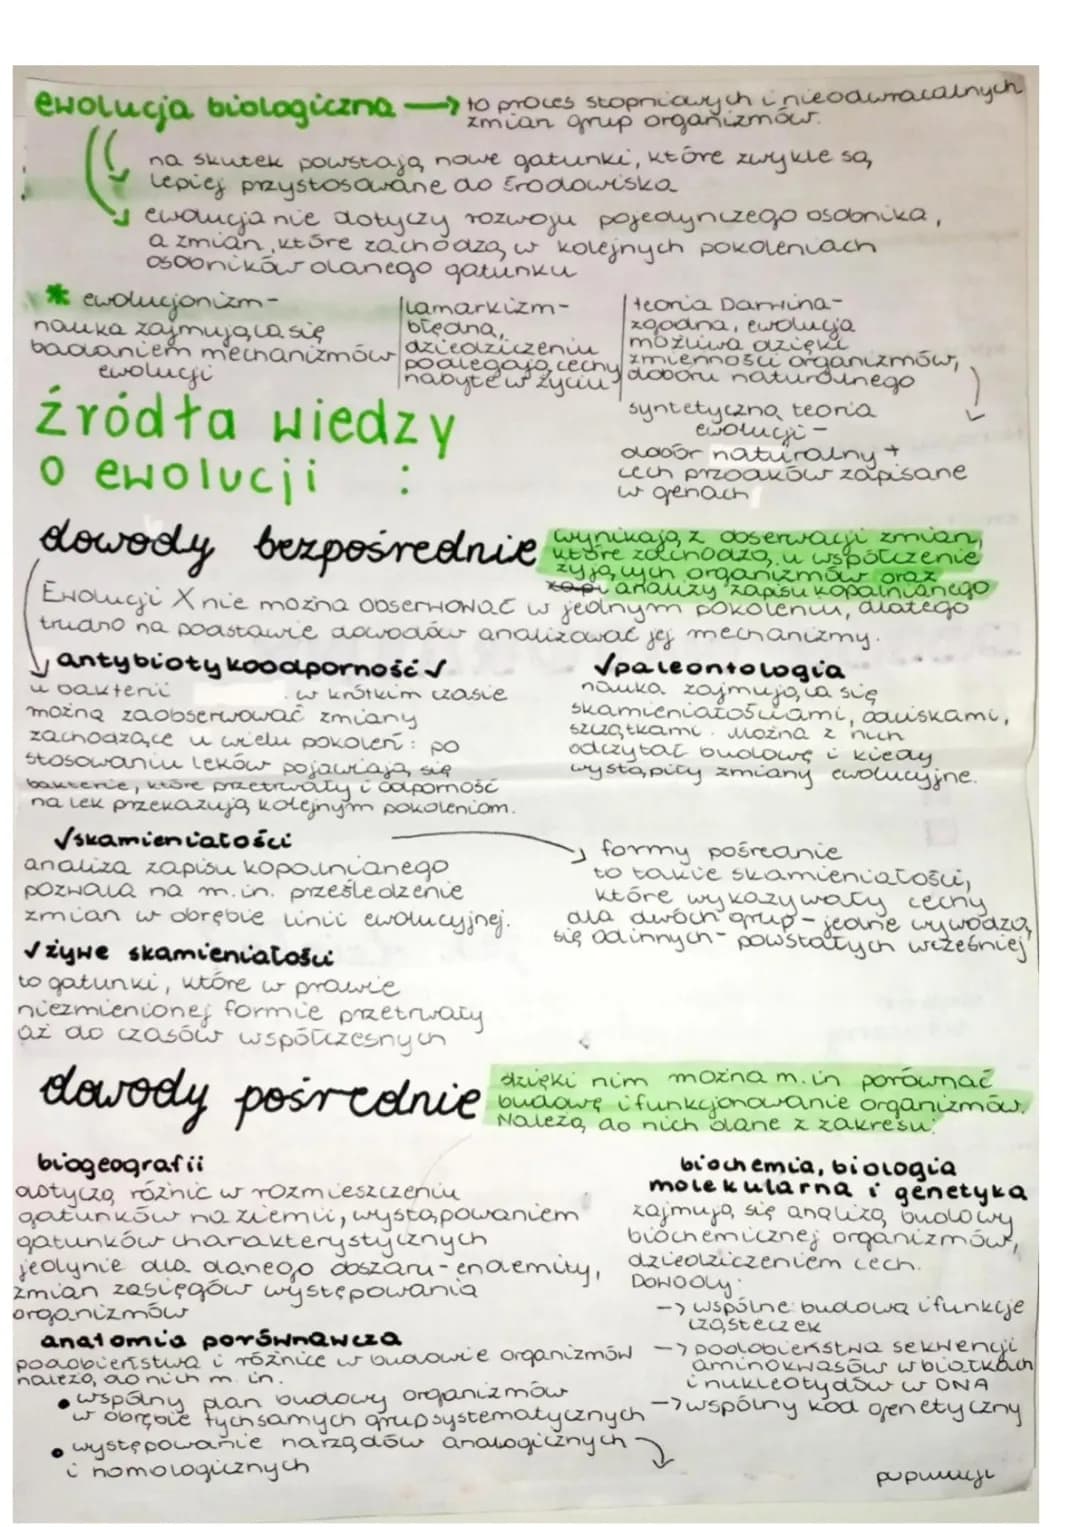 ewolucja biologiczna → to proces stopniowych i nieodwracalnych
zmian grup organizmów.
na skutek powstają nowe gatunki, które zwykle są
lepiej przystosowane do środowiska
ewolucja nie dotyczy rozwoju pojedynczego osobnika,
a zmian, które zachodzą w kolejnych pokoleniach
osobników danego gatunku
* ewolucjonizm-
nauka zajmująca się
badaniem mechanizmów
ewolucji
lamarkizm-
błędna,
dziedziczeniu
podlegają cechy
nabyte w życiu
teoria Darwina-
zgodna, ewolucja
możliwa dzięki
zmienności organizmów,
doboru naturalnego
syntetyczna teoria
ewolucji -
dobór naturalny +
cech przodków zapisane
w genach
źródła wiedzy
o ewolucji :
dowody bezpośrednie
wynikają z obserwacji zmian,
które zachodzą u współcześnie
żyjących organizmów oraz
analizy zapisu kopalnianego
Ewolucji X nie można obserwować w jednym pokoleniu, dlatego
trudno na podstawie dowodów analizować jej mechanizmy.
antybiotykoodporność ✓
u bakterii w krótkim czasie
można zaobserwować zmiany
zachodzące u wielu pokoleń: po
stosowaniu leków pojawiają się
bakterie, które przetrwały i odporność
na lek przekazują kolejnym pokoleniom.
✓paleontologia
nauka zajmująca się
skamieniałościami, odciskami,
szczątkami. Można z nich
odczytać budowę i kiedy
wystąpiły zmiany ewolucyjne.
✓skamieniałości
analiza zapisu kopalnianego
pozwala na m.in. prześledzenie
zmian w obrębie linii ewolucyjnej.
formy pośrednie
to takie skamieniałości,
które wykazywały cechy
dla dwóch grup - jedne wywodzą
się od innych - powstałych wcześniej
✓żywe skamieniałości
to gatunki, które w prawie
niezmienionej formie przetrwały
aż do czasów współczesnych
dowody pośrednie
dzięki nim można m.in porównać
budowę i funkcjonowanie organizmów.
Należą do nich dane z zakresu:
biogeografii
dotyczą różnic w rozmieszczeniu
gatunków na ziemii, występowaniem
gatunków charakterystycznych
jedynie dla danego obszaru - endemity,
zmian zasięgów występowania
organizmów
anatomia porównawcza
podobieństwa i różnice w budowie organizmów
należą do nich m. in.
• wspólny plan budowy organizmów
w obrębie tych samych grup systematycznych
• występowanie narządów analogicznych
i homologicznych
biochemia, biologia
molekularna i genetyka
zajmują się analizą budowy
biochemicznej organizmów,
dziedziczeniem cech.
DOWODY:
-> wspólne: budowa i funkcje
cząsteczek
-> podobieństwa sekwencji
aminokwasów w białkach
i nukleotydów w DNA
-> wspólny kod genetyczny